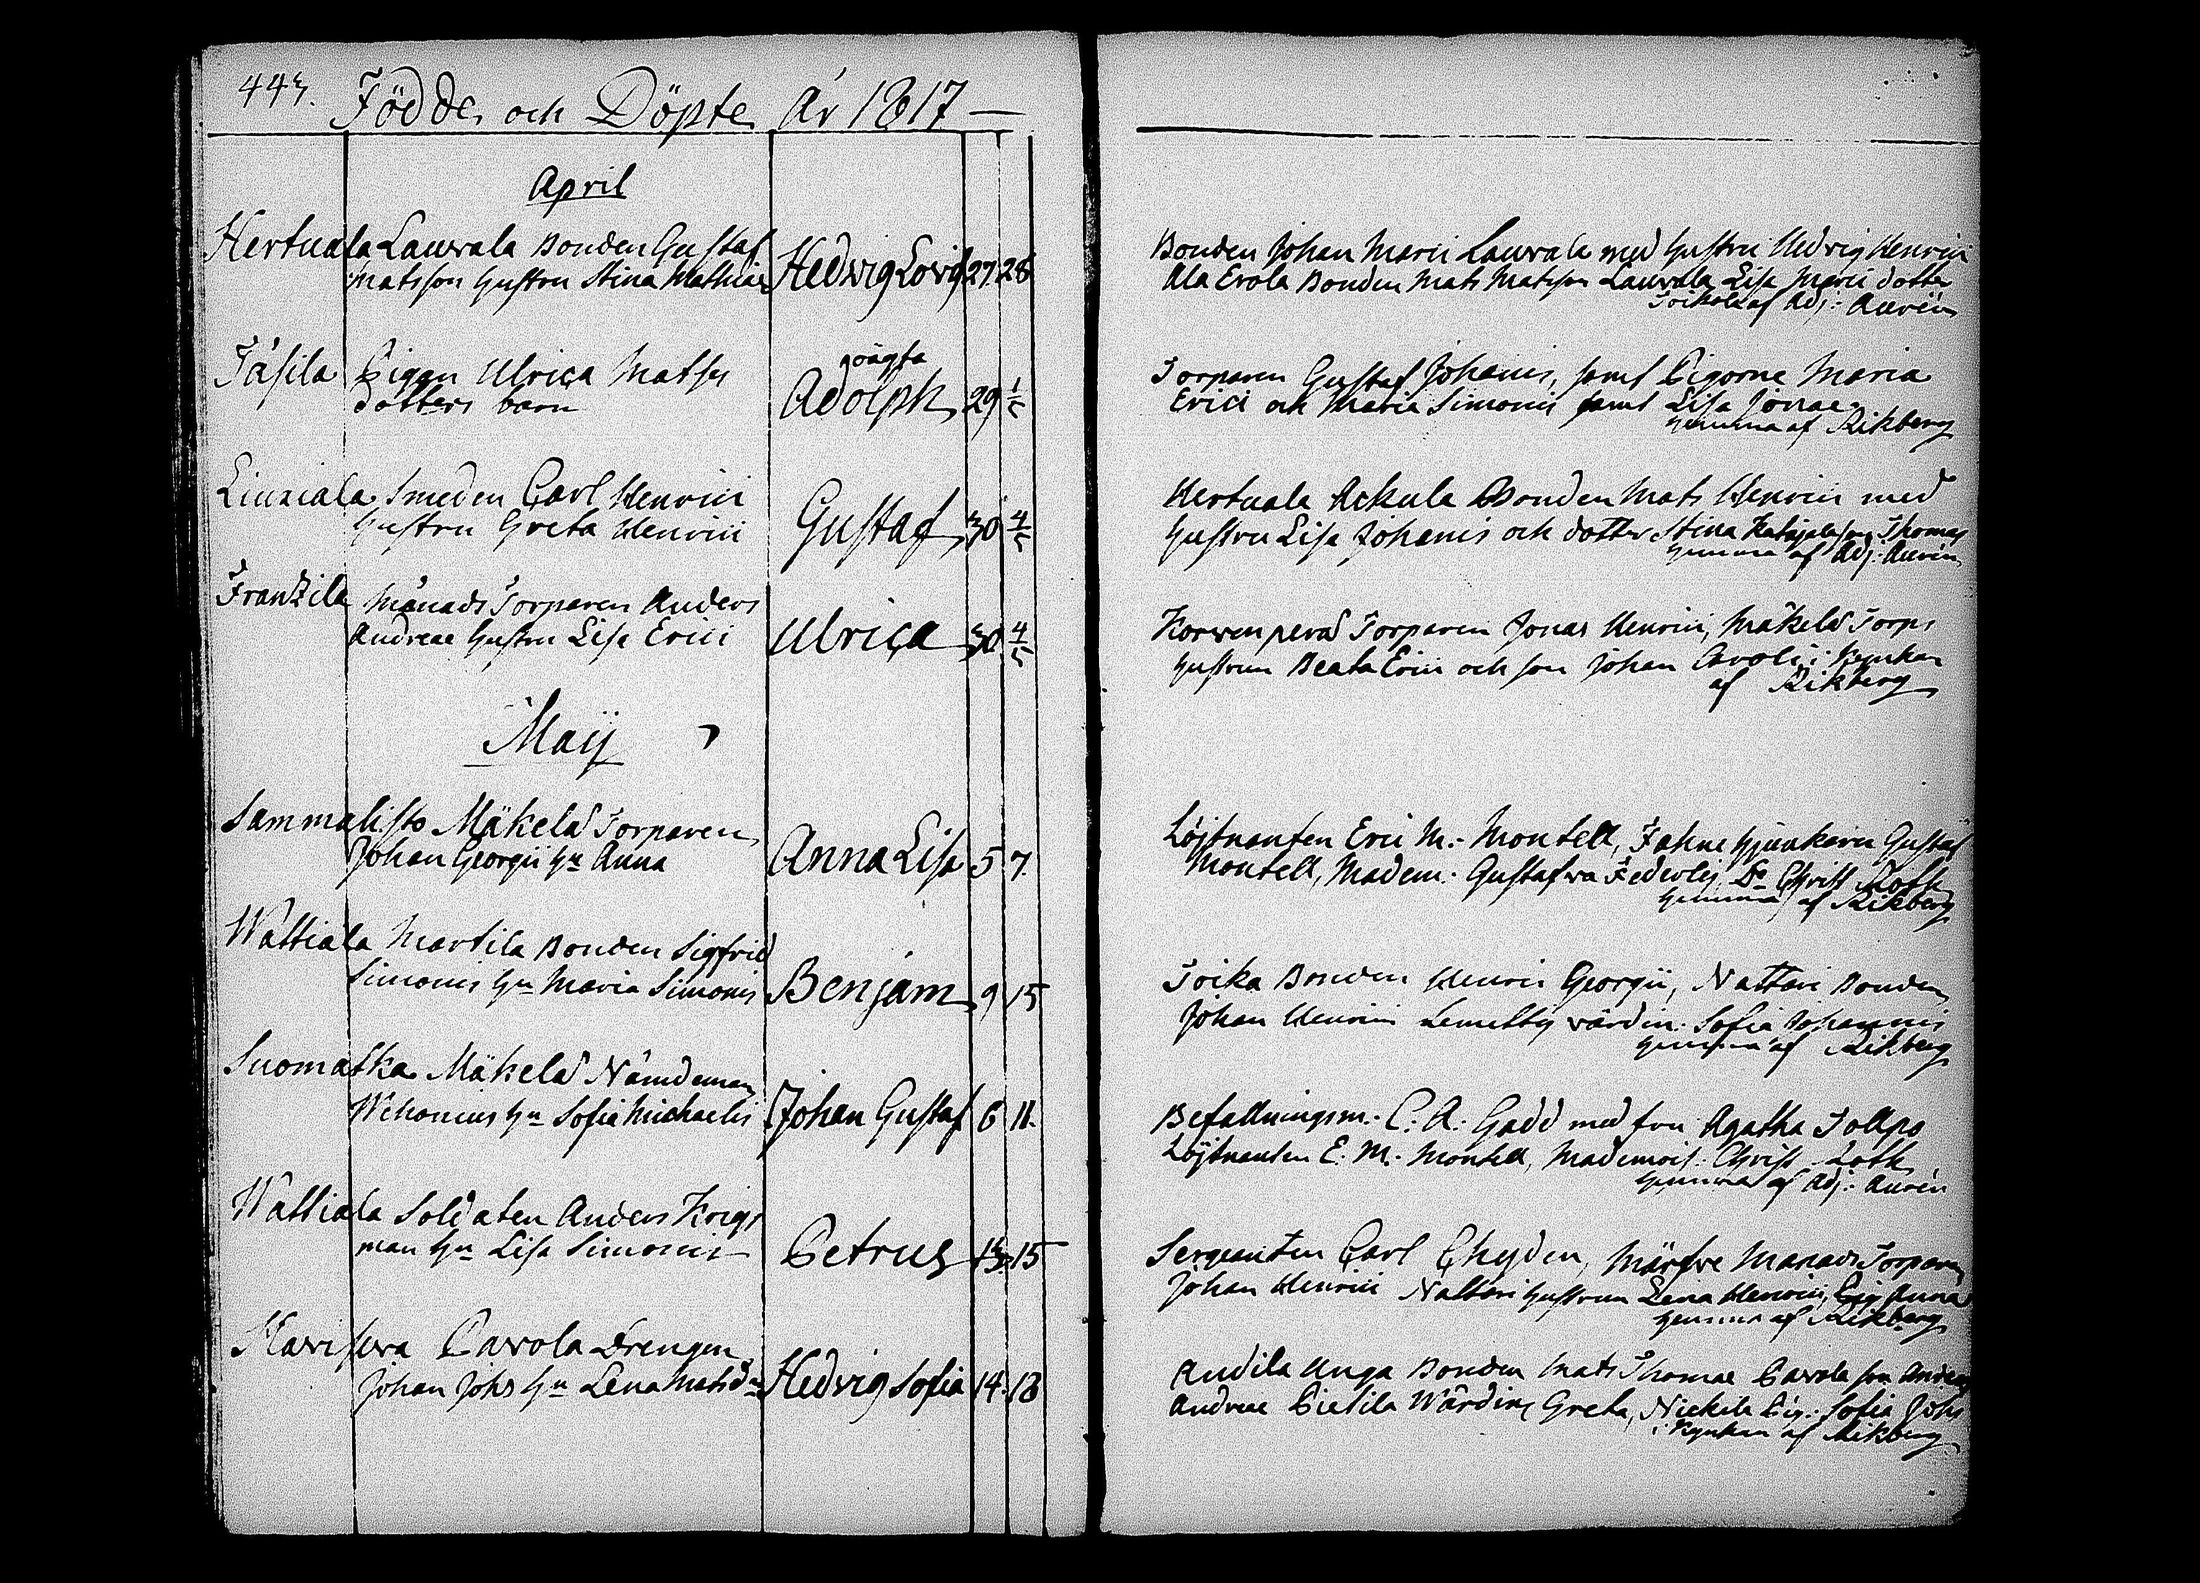 443.
Födde och Döpte År 1817 —
April
Hertuala Lauvala Bonden Gustaf
Matsson Hustru Stina Mathiæ
Hedvig Lovis 27. 28
Bonden Johan Marci Lauvala med Hustru Hedvig Henrici
Ala Erola Bonden Mats Matsson Lauvala Lisa Marci dotter
Toikola af Adj: Aurén
Täsila Pigan Ulrica Mats
dotters barn
oägta
Adolph 29 1/5
Torparen Gustaf Johanis, samt Pigorne Maria
Erici och Maria Simonis samt Lisa Jonae
hemma af Rikberg
Liuxiala Smeden Carl Henrici
Hustru Greta Henrici
Gustaf 30 4/5
Hertuala Ackula Bonden Mats Henrici med
Hustru Lisa Johanis och dotter Stina Thomas
hemma af Adj: Aurén
Frantzila Månads Torparen Anders
Andreae Hustru Lisa Erici
Ulrica 30 4/5
Korwenperä Torparen Jonas Henrici, Mäkelä Torps
hustrun Beata Erici och son Johan Caroli i Kyrkan
af Rikberg
Maij
Sammalisto Mäkelä Torparen
Johan Georgii Hu Anna
Anna Lisa 5 7.
Löjtnanten Eric M: Montell, Fahne Junkaren Gustaf
Montell, Madem: Gustafva Federley, Do Christ Loth
hemma af Rikberg
Wattiala Martila Bonden Sigfrid
Simonis Hu Maria Simonis
Benjam 9 15
Toika Bonden Henric Georgii, Nattari Bonden
Johan Henrici Lemetty värdin: Sofia Johannis
hemma af Rikberg
Suomatka Mäkelä Nämdeman
Wehonius Hu Sofia Michaelis
Johan Gustaf 6 11.
Befallningsm: C: A: Gadd med fru Agatha Tollpo
Löjtnanten E: M: Montell, Mademois: Christ. Loth
hemma af Adj: Aurén
Wattiala Soldaten Anders Krigs
man Hu Lisa Simonis
Petrus 13. 15
Sergeanten Carl Chydén, Märfve Månads Torparen
Johan Henrici Nattari Hustrun Lena Henrici, Pig Anna
hemma af Rikberg
Havisevä Pavola Drengen
Johan Johs Hu Lena Matsdr
Hedvig Sofia 14. 18
Andila Unga Bonden Mats Thomae Pavola son Anders
Andreae Pietila Wärdin Greta, Nickila Pig: Sofia Johs
i Kyrkan af Rikberg